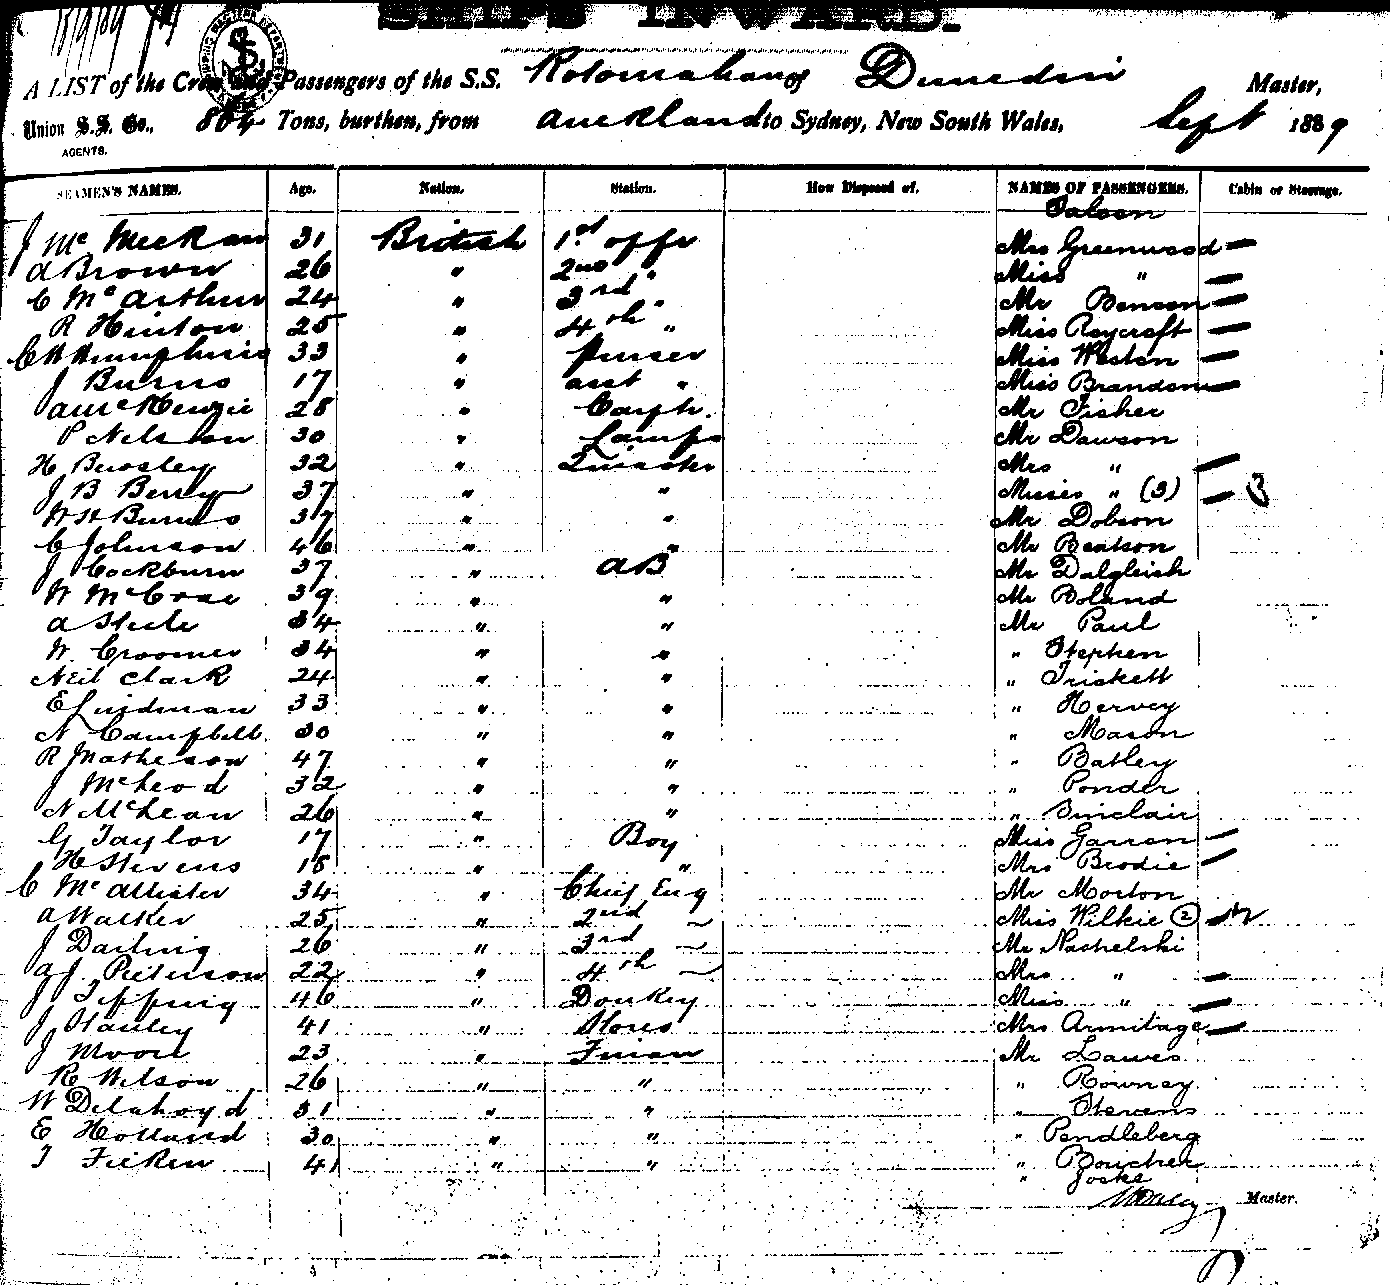 SHIPS INWARD.
A LIST of the Crew and Passengers of the S.S. Rotomahana of Dunedin Master,
Union S.S. Co., 864 Tons, burthen, from Auckland to Sydney, New South Wales, Sept 1889
AGENTS.
SEAMEN'S NAMES. Age. Nation. Station. How Disposed of. NAMES OF PASSENGERS. Cabin or Steerage.
Saloon
J Mc Meckan 31 British 1st offr Mrs Greenwood
A Brown 26 " 2nd " Miss "
C McArthur 24 " 3rd " Mr Benson
R Hinton 25 " 4th " Miss Roycraft
33 " Purser Miss Weston
J Burns 17 " asst " Miss Brandson
A McKenzie 28 " Carptr. Mr Fisher
P Nelson 30 " Lamps Mr Dawson
H Beasley 32 " Qrmaster Mrs "
J B Berry 37 " " Misses " (3) 3
W H Burns 37 " " Mr Dobson
C Johnson 46 " " Mr Beatson
J Cockburn 37 " AB Mr Dalgleish
W McCrae 39 " " Mr Boland
A Steele 34 " " Mr Paul
W. Croomer 34 " " " Stephen
Neil Clark 24 " " " Triskett
E Lindman 33 " " " Hervey
N Campbell 30 " " " Mason
R Matheson 47 " " " Batley
J McLeod 32 " " " Ponder
N McLean 26 " " " Sinclair
G Taylor 17 " Boy Miss Garran
H Stevens 18 " " Mrs Brodie
C McAllister 34 " Chief Eng Mr Morton
A Walker 25 " 2nd Miss Wilkie (2)
J Darling 26 " 3rd Mr Nashelski
A J. Peterson 22 " 4th Mrs "
J Tipping 46 " Donkey Miss "
J Stanley 41 " Stores Mrs Armitage
J Moore 23 " Firian Mr Lawes
R Wilson 26 " " " Rowney
W Delahoyd 31 " " " Stevens
E Holland 30 " " " Pendleberg
T Ficken 41 " " " Boucher
" Joske
Master.